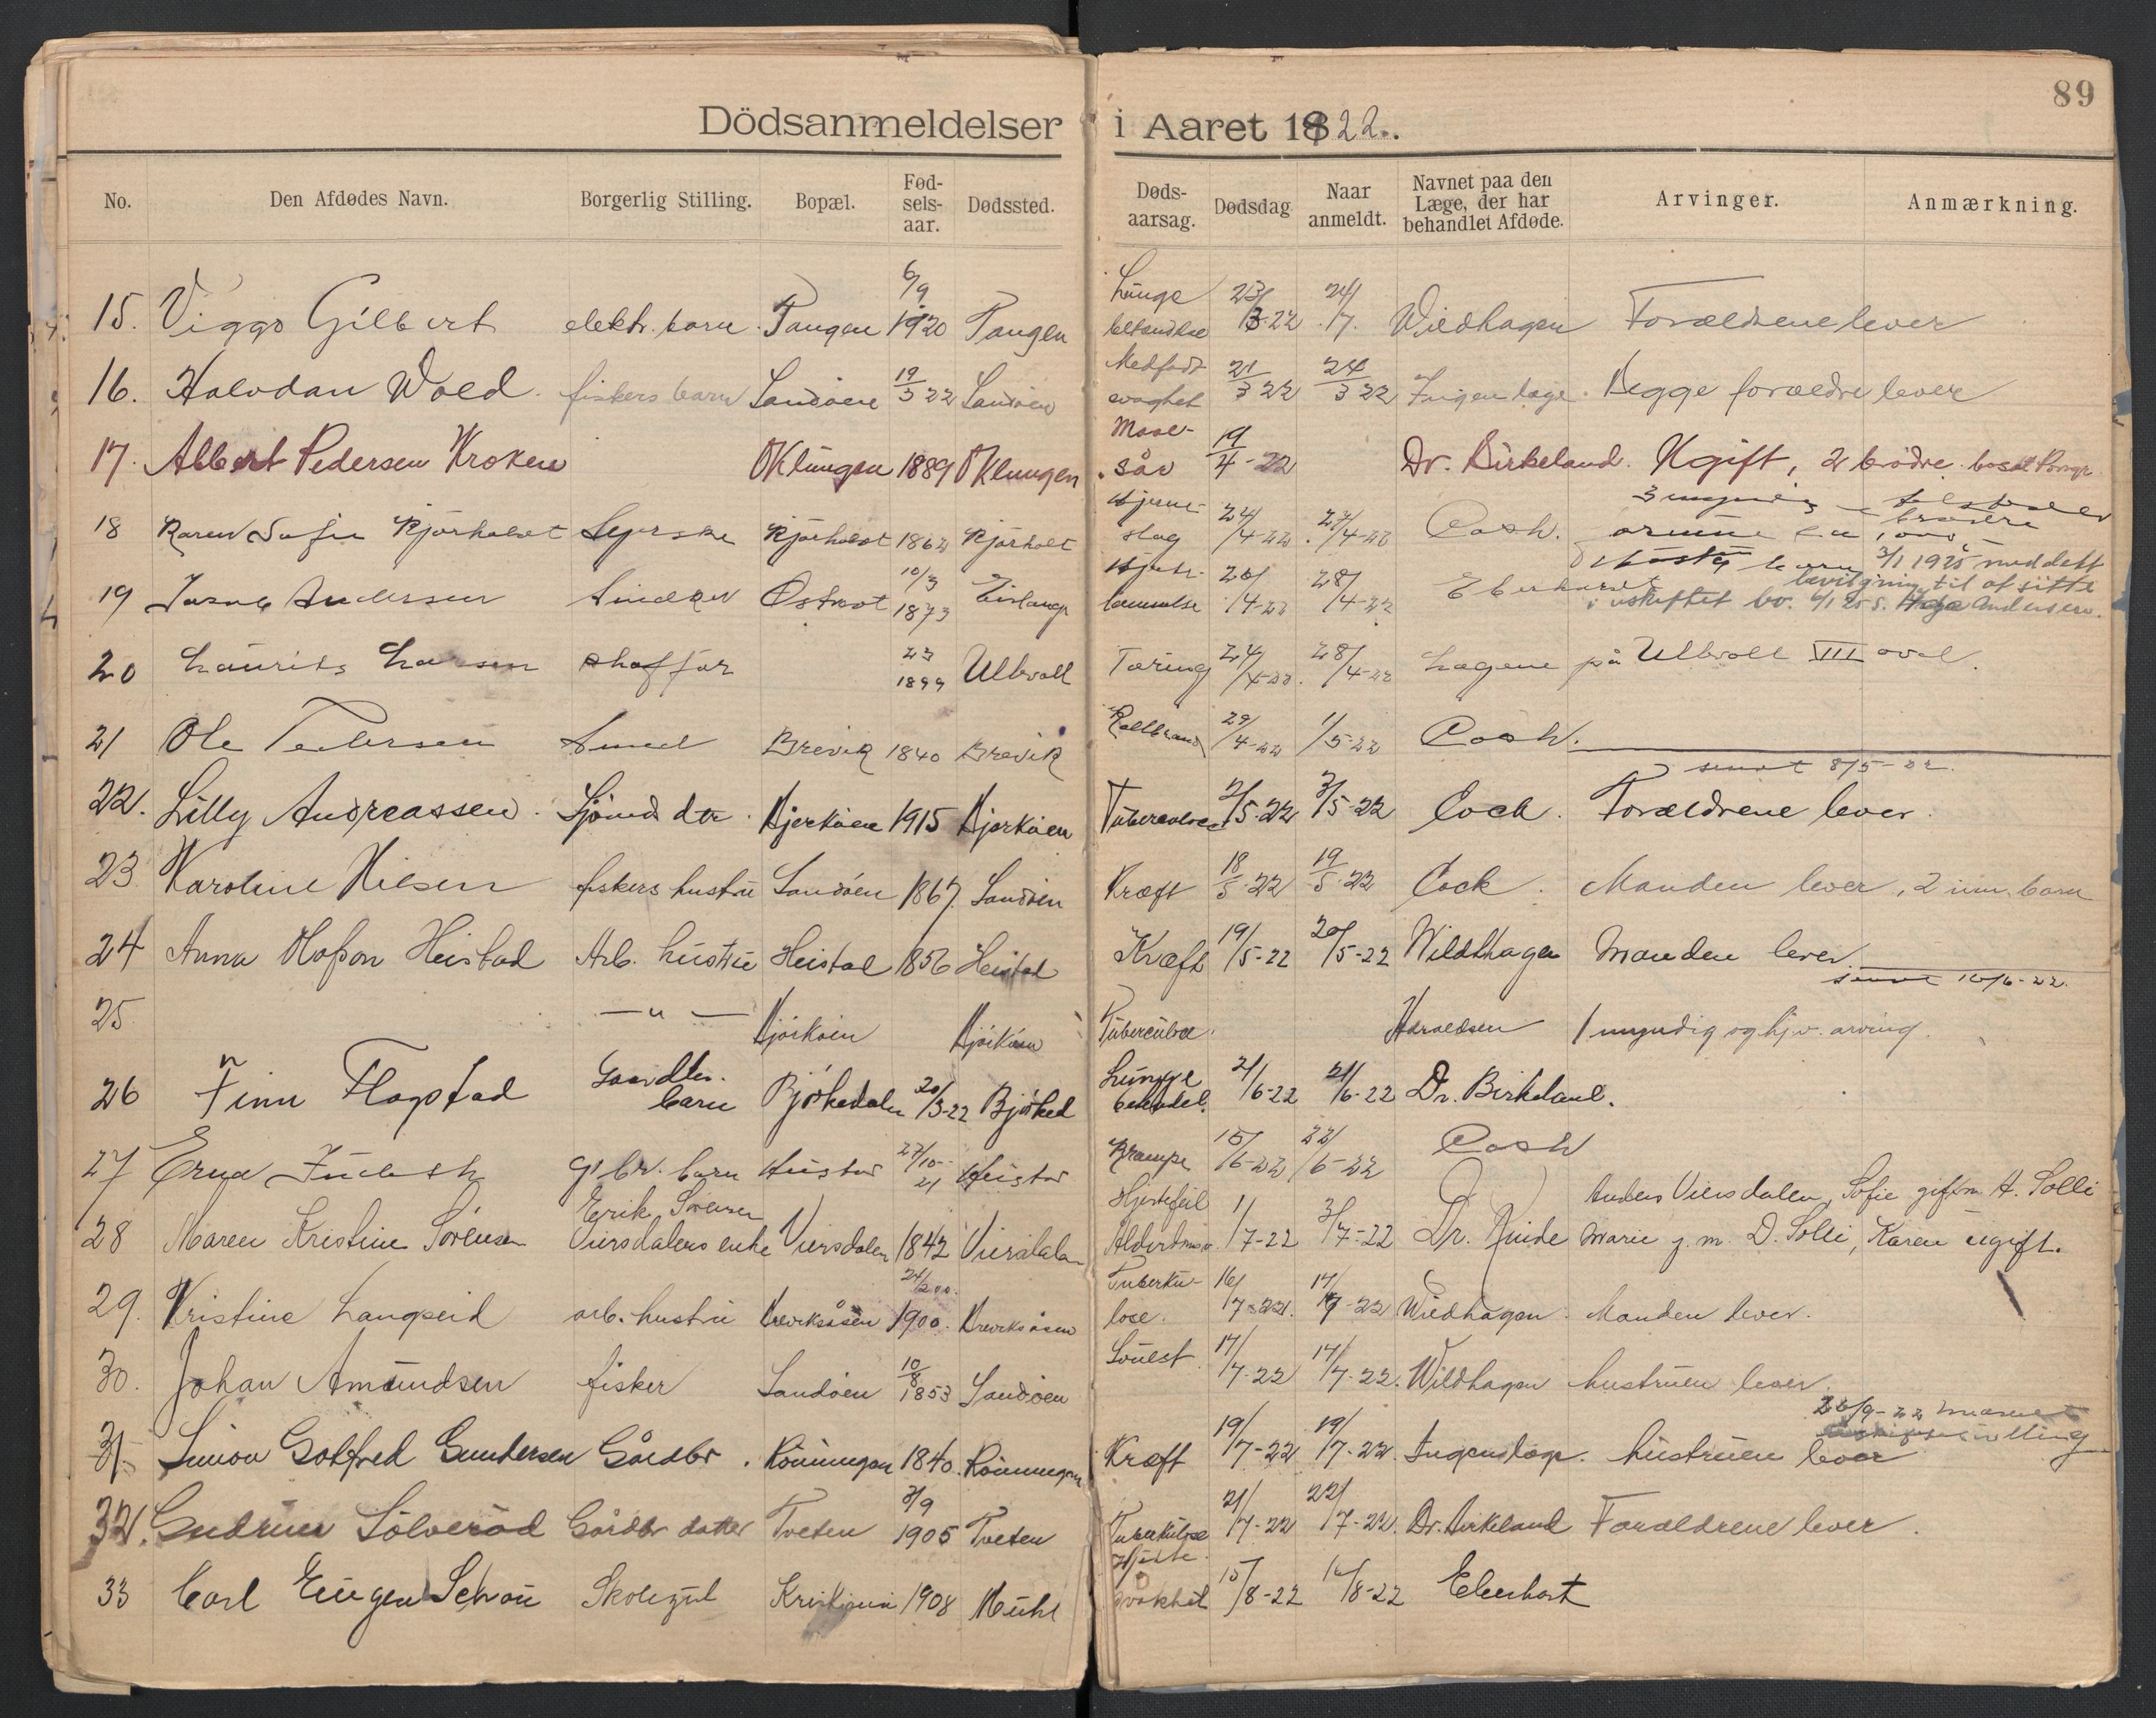 89
Dödsanmeldelser i Aaret 1922.
No. Den Afdødes Navn. Borgerlig Stilling. Bopæl. Fød-sels-aar. Dødssted. Døds-aarsag. Dødsdag Naar anmeldt. Navnet paa den Læge, der har behandlet Afdøde. Arvinger. Anmærkning.
15. Viggo Gilbert elektr. barn Tangen 6/9 1920 Tangen Lunge betendelse 23/3-22 24/ Wildhagen Forældrene lever
16. Halvdan Wold. fiskers barn Sandöen 19/3 22 Sandöen Medfødt svaghet 21/3 22 24/3 22 Ingen læge. Begge forældre lever
17. Albert Pedersen Kroken Oklungen 1889 Oklungen Mave-sår 19/4-22 Dr. Birkeland. Ugift, 2 brødre. bosat
18 Karen Sofie Kjørholt Kjørholt 1862 Kjørholt Hjerne-slag 24/4-22 27/4-22 Cock.
19 Andersen Snedker 10/3 1873 28/4-22 3/1 1925 meddelt
bevilgning til at sitte
i uskiftet bo. Andersen.
20 Laurits Larsen 1899 Ullevoll Tæring 24/4-22 28/4-22 Lægene på Ullevoll III avd.
21 Ole Pedersen Smed Brevik 1840 Brevik Koldbrand 29/4-22 1/5-22 Cock.
8/5-22
22. Lilly Andreassen. Sjömds dtr. Bjerköen 1915 Bjerköen Tuberculose 2/5-22 3/5-22 Cock. Forældrene lever.
23 Karoline Nilsen fiskers hustru Sandöen 1867 Sandöen Kræft 18/5-22 19/5-22 Cock. Manden lever, 2 barn
24 Anna Olafson Heistad Arb. hustru Heistad 1856 Heistad Kræft 19/5-22 20/5-22 Wildthagen Manden lever
10/6-22.
25 — " — Bjørköen Bjørköen Tuberculose Haraldsen 1 umyndig og hjv. arving.
26 Finn Flagstad Gaardbr. barn Bjørkedalen 20/3-22 Bjørked Lunge betendel. 21/6-22 21/6-22 Dr. Birkeland.
27 Erna g'br. barn Heistad 27/10-21 Heistad Krampe 15/6-22 22/6-22 Cock
28 Maren Kristine Sörensen Erik Sörensen Viersdalens enke Viersdalen 1842 Viersdalen Hjertefeil Alderdomssv. 1/7-22 3/7-22 Dr. Anders Viersdalen, Sofie gift m. A. Solli
Marie g. m. D. Solli, Karen ugift.
29. Kristine Langseid arb. hustru 24/2 1900 Tuberku-lose. 16/7-22. 17/7-22 Wildhagen. Manden lever.
30. Johan Amundsen fisker Sandöen 10/8 1853 Sandöen 17/7-22 17/7-22. Wildhagen hustruen lever
31 Simon Gotfred Gundersen Gårdbr. Rönningen 1840. Rönningen Kræft 19/7-22 19/7-22. Ingen læge. hustruen lever
32. Gudrun Sölveröd Gårdbr datter Tveten 3/9 1905 Tveten Tuberkulose 21/7-22 22/7-22. Dr. Birkeland Forældrene lever.
33 Carl Eugen Schou Skolegut Kristiania 1908 Hjerte svakhet 15/8-22 16/8-22 Eberhart